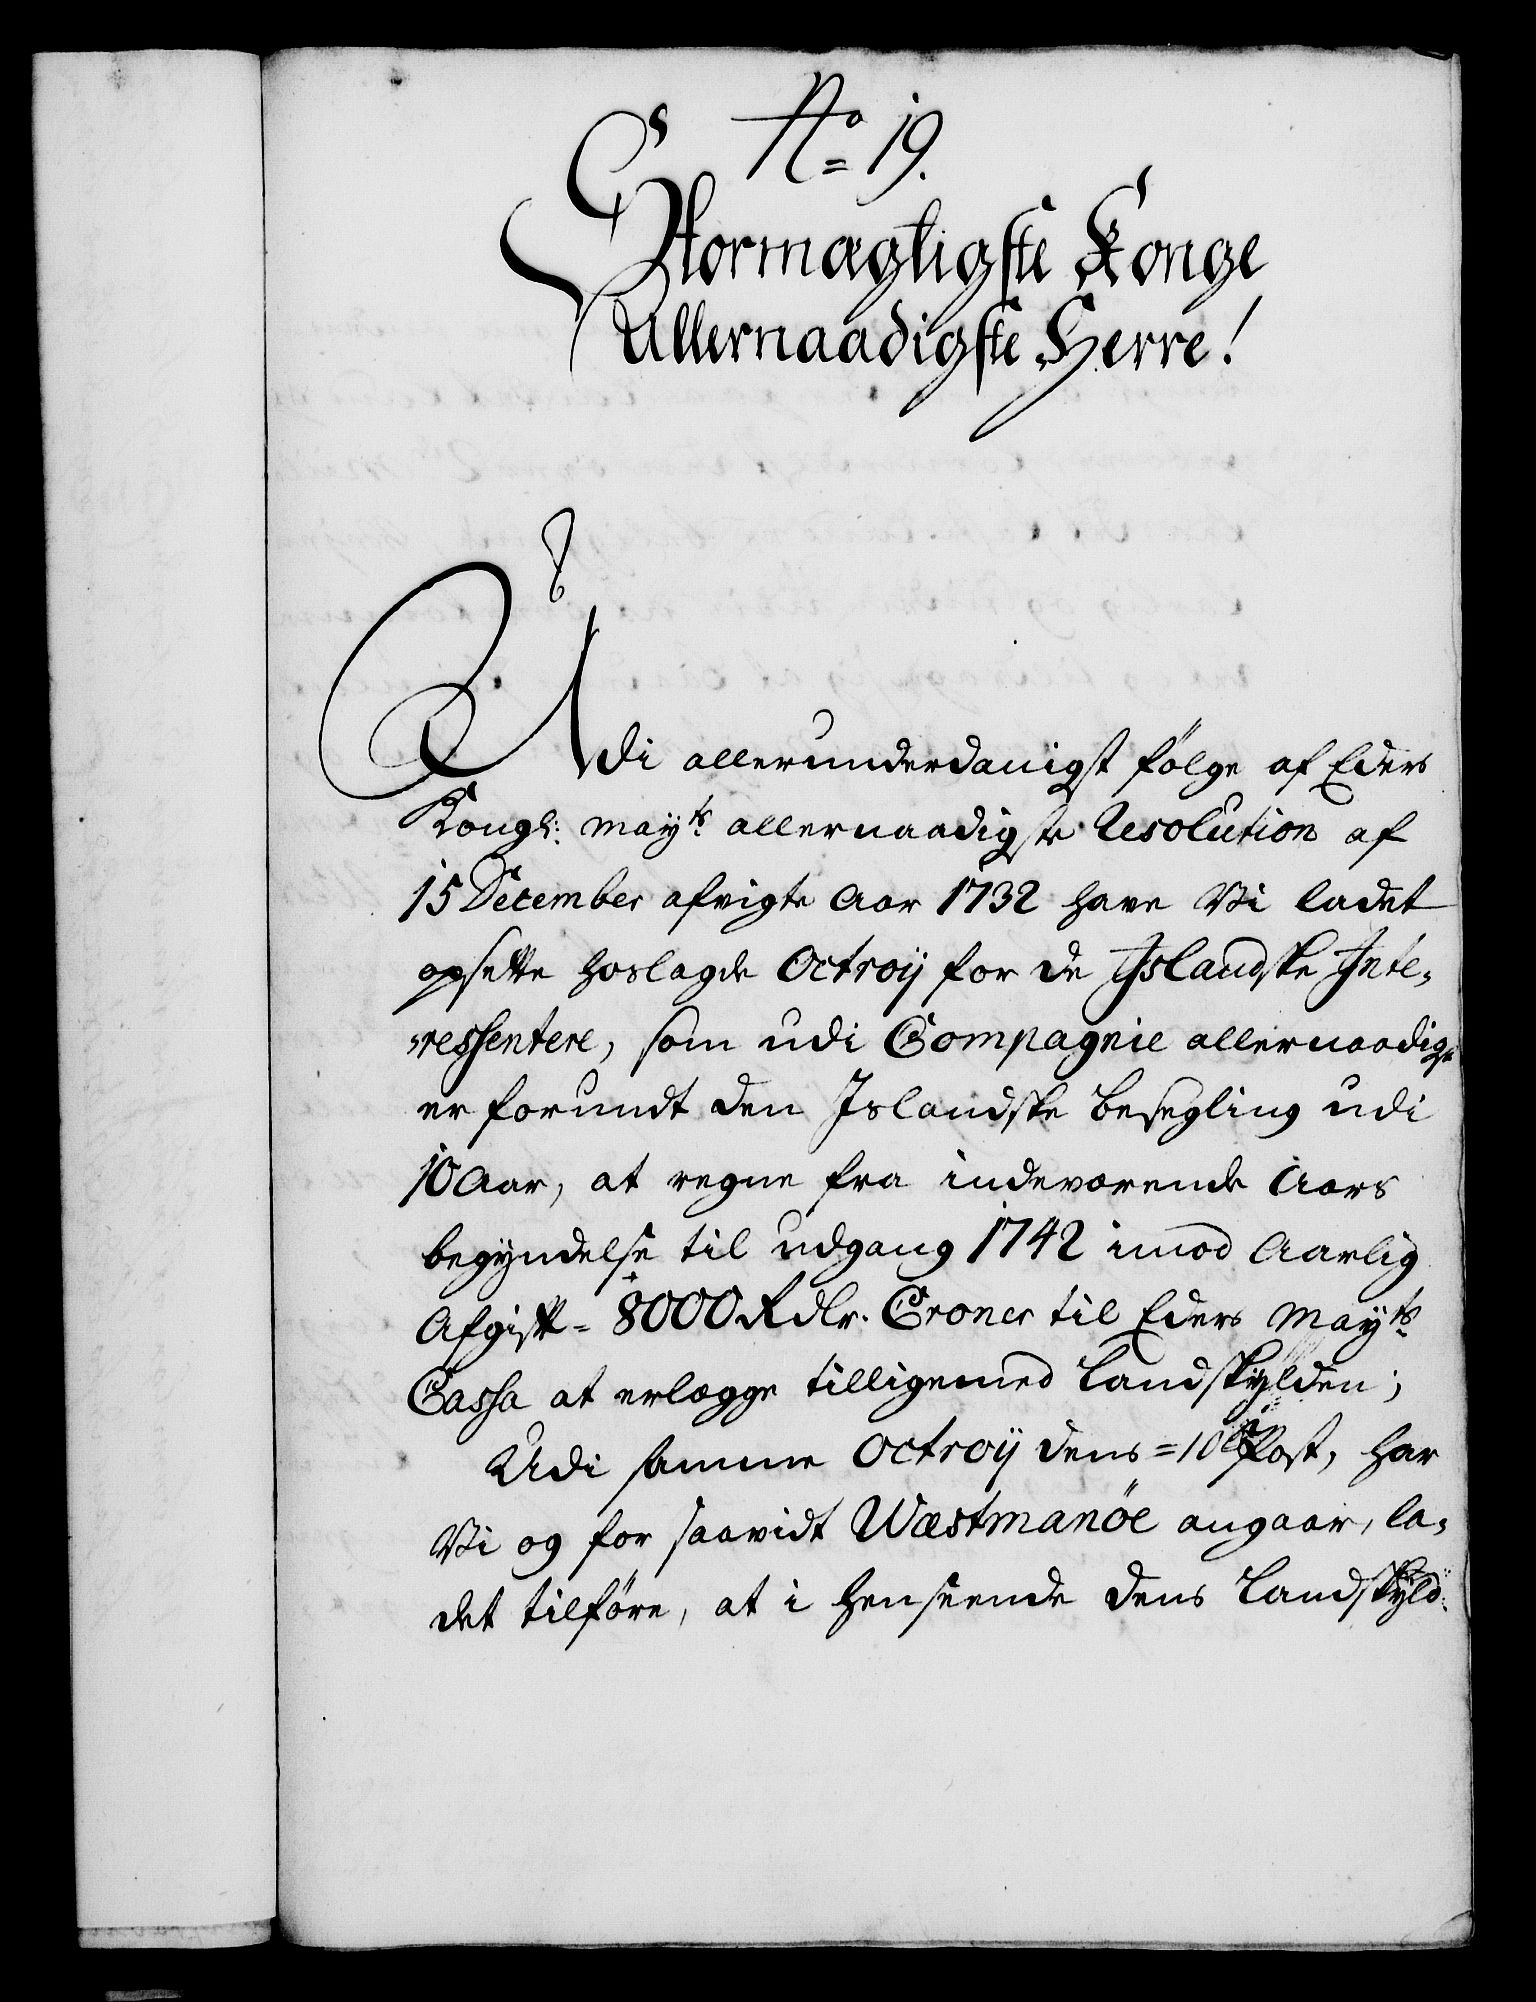 No 19.
Stormægtigste Konge
Allernaadigste Herre!
Udi allerunderdanigst følge af Eders
Kongl: mayts allernaadigste Resolution af
15 December afvigte Aar 1732 have Vi ladet
opsette hoslagde Octroij for de Jslandske Inte-
ressentere, som udi Compagnie allernaadigst
er forundt den Jslandske besegling udi
10 Aar, at regne fra indeværende Aars
begyndelse til udgang 1742 imod Aarlig
Afgift = 8000 Rdlr. Croner til Eders Mayts
Cassa at erlægge tilligemed Landskylden;
Udi samme Octroij dens = 10de Post, har
Vi og for saavidt Wæstmanöe angaar, la-
det tilføre, at i henseende dens Landskyld